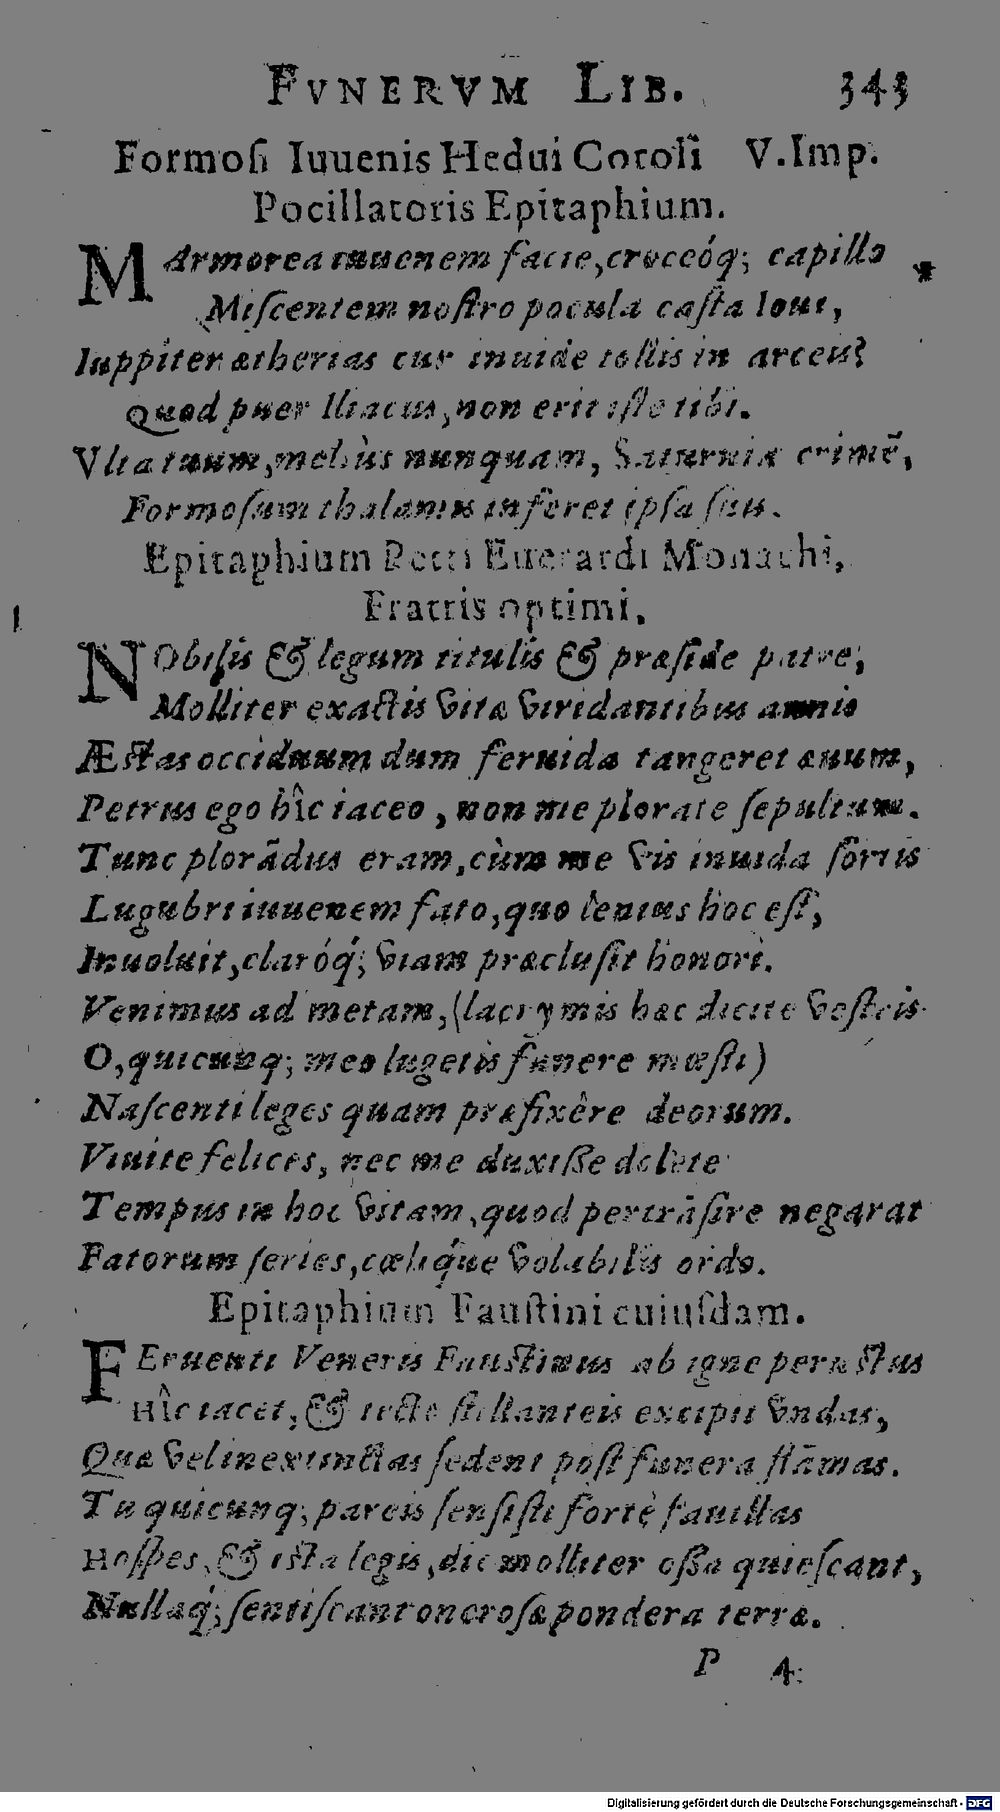 FVNERVM LIB. 343
Formoſi Iuuenis Hedui Cotoli V. Imp.
Pocillatoris Epitaphium.
MArmorea iuuenem facie, croceóq; capillo
Miſcentem noſtro pocula caſta Ioui,
Iuppiter ætherias cur inuide tollis in arceis?
Quod puer Iliacus, non erit iſte tibi.
Vlta tuum, meliùs nunquam, Saturnia crimẽ,
Formoſum thalamis inferet ipſa ſuis.
Epitaphium Petri Euerardi Monachi,
Fratris optimi.
NObilis & legum titulis & præſide patre,
Molliter exactis vitæ viridantibus annis
Æstas occiduum dum feruida tangeret æuum,
Petrus ego hîc iaceo, non me plorate ſepultum.
Tunc plorãdus eram, cùm me vis inuida ſortis
Lugubri iuuenem fato, quo lenius hoc eſt,
Inuoluit, claróq́; viam præcluſit honori.
Venimus ad metam, (lacrymis hæc dicite veſtris
O, quicunq; meo lugetis funere mœſti)
Naſcenti leges quam præfixêre deorum.
Viuite felices, nec me duxiße dolete
Tempus in hoc vitam, quod pertrãſire negarat
Fatorum ſeries, cæliq́ue volubilis ordo.
Epitaphium Fauſtini cuiuſdam.
FEruenti Veneris Faustinus ab igne perustus
Hîc iacet, & tecto ſtillanteis excipit vndas,
Quæ vel inextinctas ſedent poſt funera flãmas.
Tu quicunq; pareis ſenſiſti fortè fauillas
Hoſpes, & iſta legis, dic molliter oßa quieſcant,
Nullaq́; ſentiſcant oneroſæ pondera terræ.
P 4
Digitalisierung gefördert durch die Deutsche Forschungsgemeinschaft - DFG